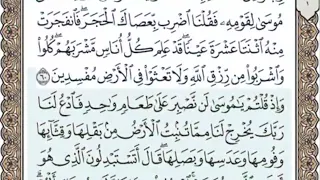 مُوسَىٰ لِقَوْمِهِۦ فَقُلْنَا ٱضْرِب بِّعَصَاكَ ٱلْحَجَرَ ۖ فَٱنفَجَرَتْ
مِنْهُ ٱثْنَتَا عَشْرَةَ عَيْنًا ۖ قَدْ عَلِمَ كُلُّ أُنَاسٍ مَّشْرَبَهُمْ ۖ كُلُوا۟
وَٱشْرَبُوا۟ مِن رِّزْقِ ٱللَّهِ وَلَا تَعْثَوْا۟ فِى ٱلْأَرْضِ مُفْسِدِينَ ٦٠
وَإِذْ قُلْتُمْ يَٰمُوسَىٰ لَن نَّصْبِرَ عَلَىٰ طَعَامٍ وَٰحِدٍ فَٱدْعُ لَنَا
رَبَّكَ يُخْرِجْ لَنَا مِمَّا تُنۢبِتُ ٱلْأَرْضُ مِنۢ بَقْلِهَا وَقِثَّآئِهَا
وَفُومِهَا وَعَدَسِهَا وَبَصَلِهَا ۖ قَالَ أَتَسْتَبْدِلُونَ ٱلَّذِى هُوَ